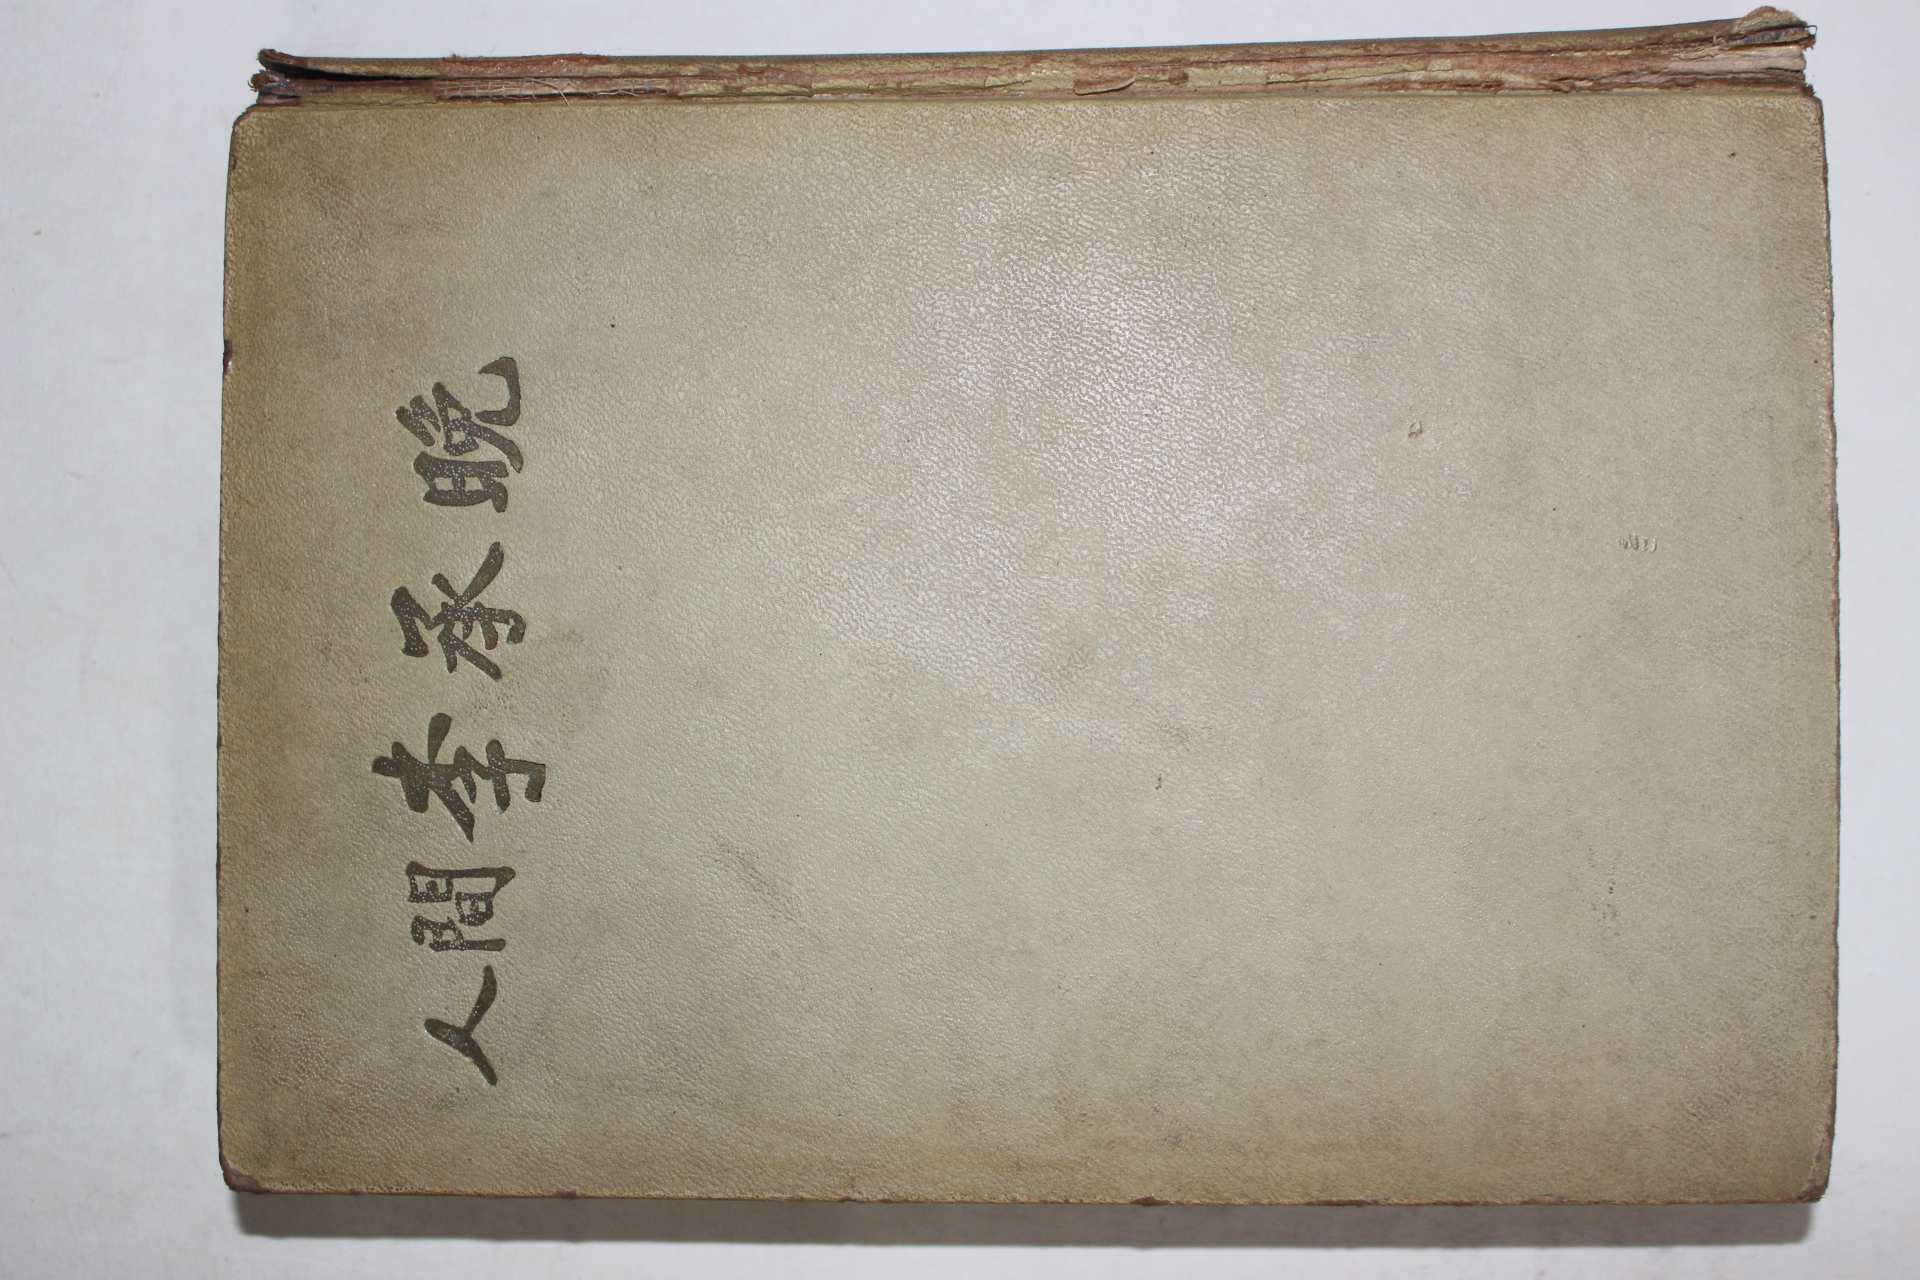 人間李承晩